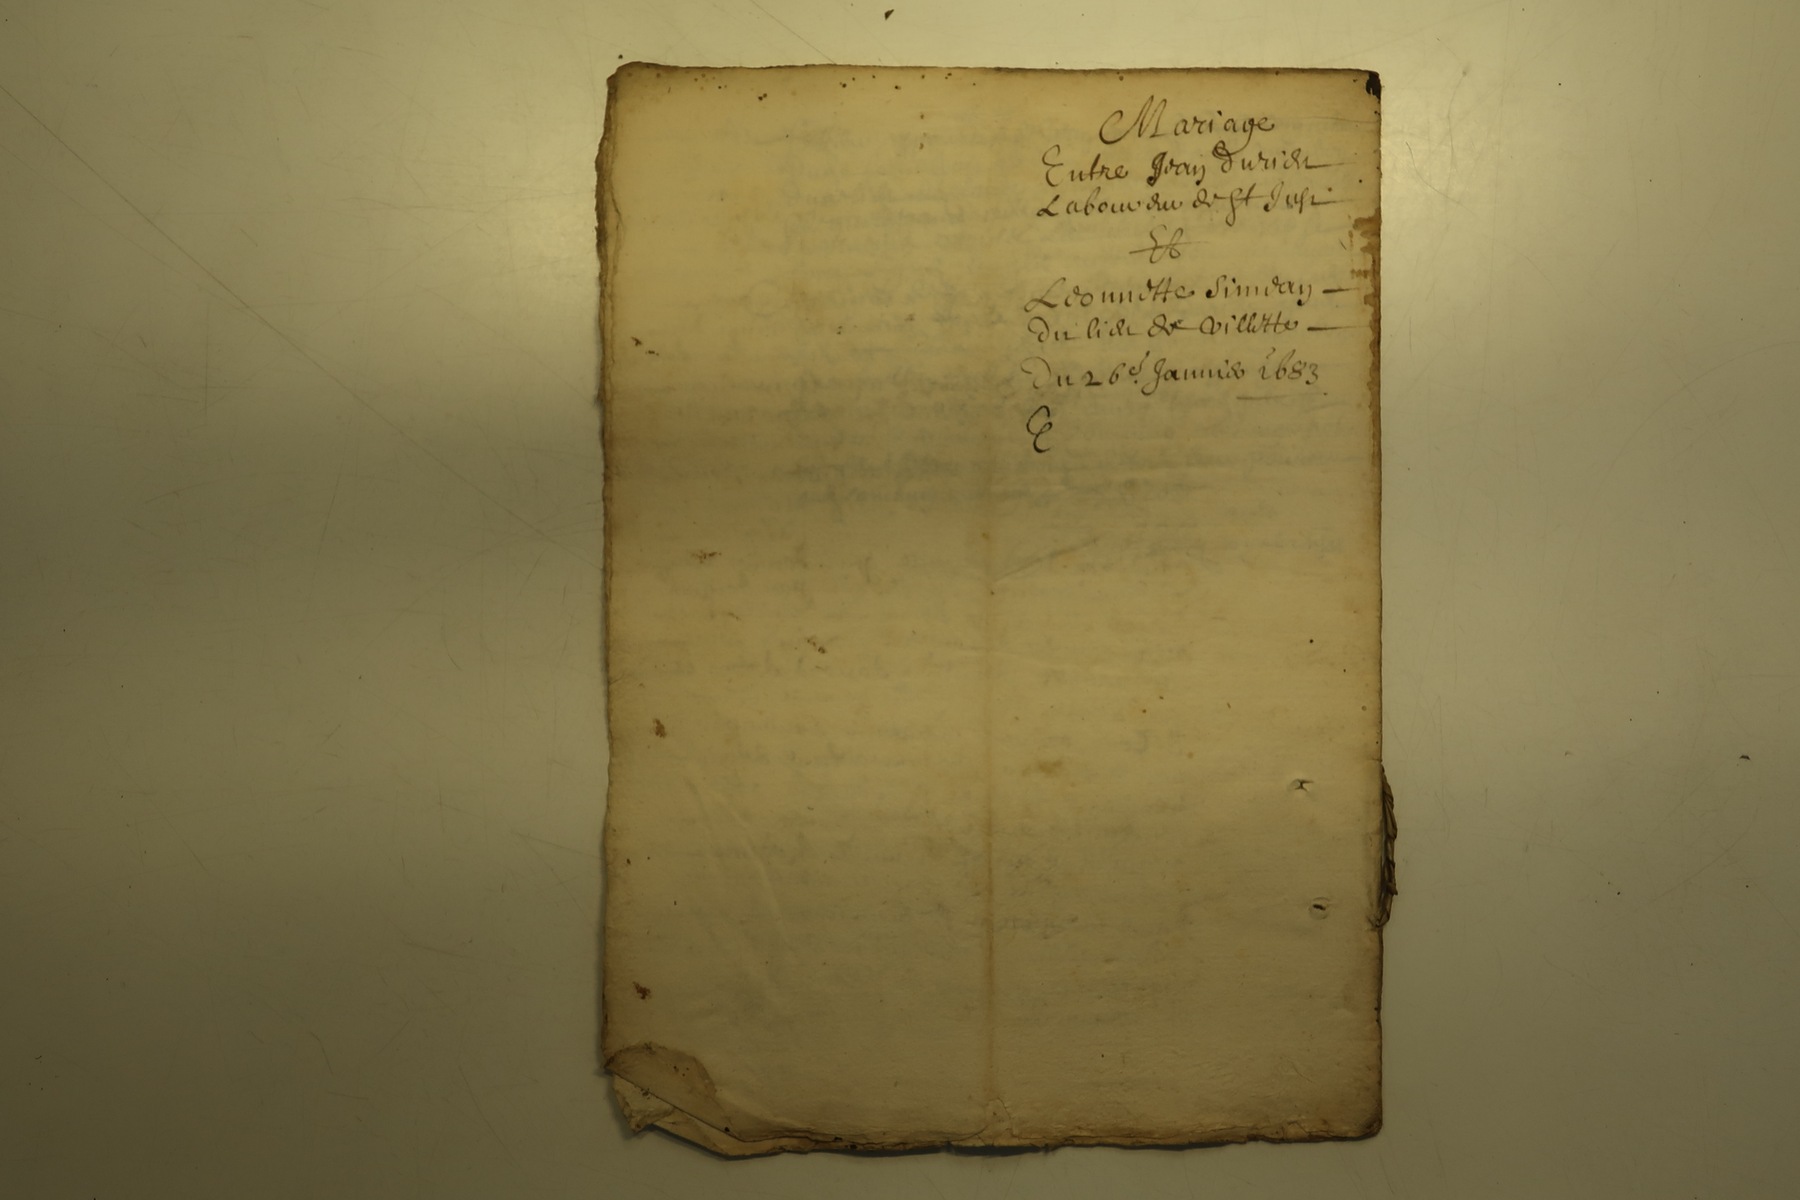 Mariage
Entre Jean Durieu
Laboureur de St Just
Et
Leonnette Simean
Du lieu de Villette
Du 26e Januier 1683